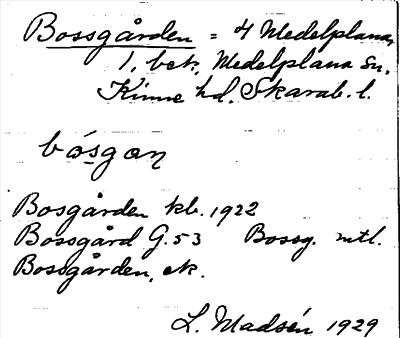 Bossgården = 4 Medelplana,
1, bek, Medelplana Sn.
Kinne hd. Skarab. l.
bósgan
Bosgården kb. 1922
Bossgård G. 53 Bossg. mtl.
Bossgården, ek.
L. Madsén 1929